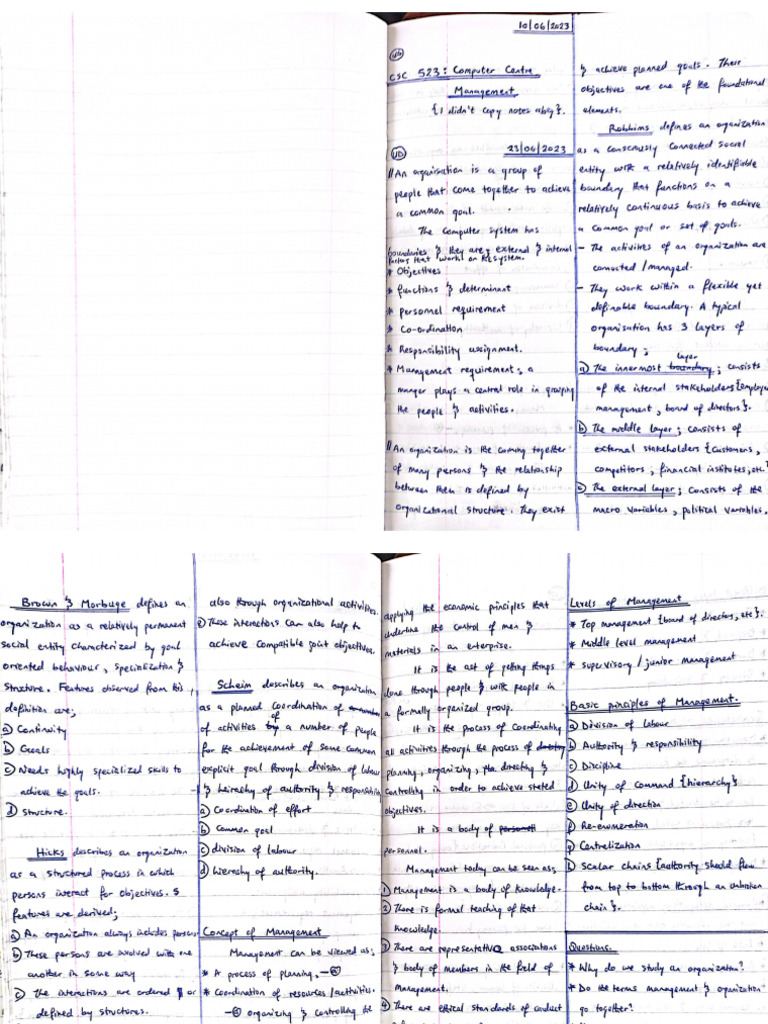 10/06/2023
CSC 523: Computer Centre
Management
{I didn't copy notes okay}.
UD
23/06/2023
// An organisation is a group of
people that come together to achieve
a common goal.
The computer system has
boundaries & they are external & internal
factors that work on the system.
* Objectives
* functions & determinant
* personnel requirement
* Co-ordination
* Responsibility assignment.
* Management requirement; a
manger plays a central role in grouping
the people & activities.
// An organization is the coming together
of many persons & the relationship
between them is defined by
organizational structure. They exist
& achieve planned goals. These
objectives are one of the foundational
elements.
Robbims defines an organization
as a consciously connected social
entity with a relatively identifiable
boundary that functions on a
relatively continuous basis to achieve
a common goal or set of goals.
- The activities of an organization are
connected/managed.
- They work within a flexible yet
definable boundary. A typical
organisation has 3 layers of
boundary;
a) The innermost boundary layer; consists
of the internal stakeholders {employee
management, board of directors}.
b) The middle layer; consists of
external stakeholders {customers,
competitors, financial institutes, etc.
c) The external layer; consists of the
macro variables, political variables,
Brown & Morbuge defines an
organization as a relatively permanent
social entity characterized by goal
oriented behaviour, specialization &
structure. Features observed from this
definition are;
a) Continuity
b) Goals
c) Needs highly specialized skills to
achieve the goals.
d) structure.
Hicks describes an organization
as a structured process in which
persons interact for objectives. 5
features are derived;
a) An organization always includes persons
b) These persons are involved with one
another in some way
c) The interactions are ordered & or
defined by structures.
also through organizational activities.
e) These interactions can also help to
achieve compatible joint objectives.
Scheim describes an organization
as a planned coordination of
of activities of a number of people
for the achievement of some common
explicit goal through division of labour
& hierachy of authority & responsibility
a) Coordination of effort
b) Common goal
c) division of labour
d) hierachy of authority.
Concept of Management
Management can be viewed as;
* A process of planning,
* Coordination of resources/activities.
organizing & controlling the
applying the economic principles that
underline the control of men &
materials in an enterprise.
It is the act of getting things
done through people & with people in
a formally organized group.
It is the process of Coordinating
all activities through the process of
planning, organizing, directing &
controlling in order to achieve stated
objectives.
It is a body of
personnel.
Management today can be seen as;
1) Management is a body of knowledge.
2) There is formal teaching of that
knowledge.
3) There are representative associations
& body of members in the field of
Management.
4) There are ethical standards of conduct
Levels of Management
* Top management {board of directors, etc}.
* Middle level management
* supervisory / junior management
Basic principles of Management.
a) Division of labour
b) Authority & responsibility
c) Discipline
d) Unity of command {hierarchy}
e) Unity of direction
f) Re-enumeration
g) Centralization
h) Scalar chains {authority should flow
from top to bottom through an unbroken
chain}.
Questions.
* Why do we study an organization?
* Do the terms management & organization
go together?